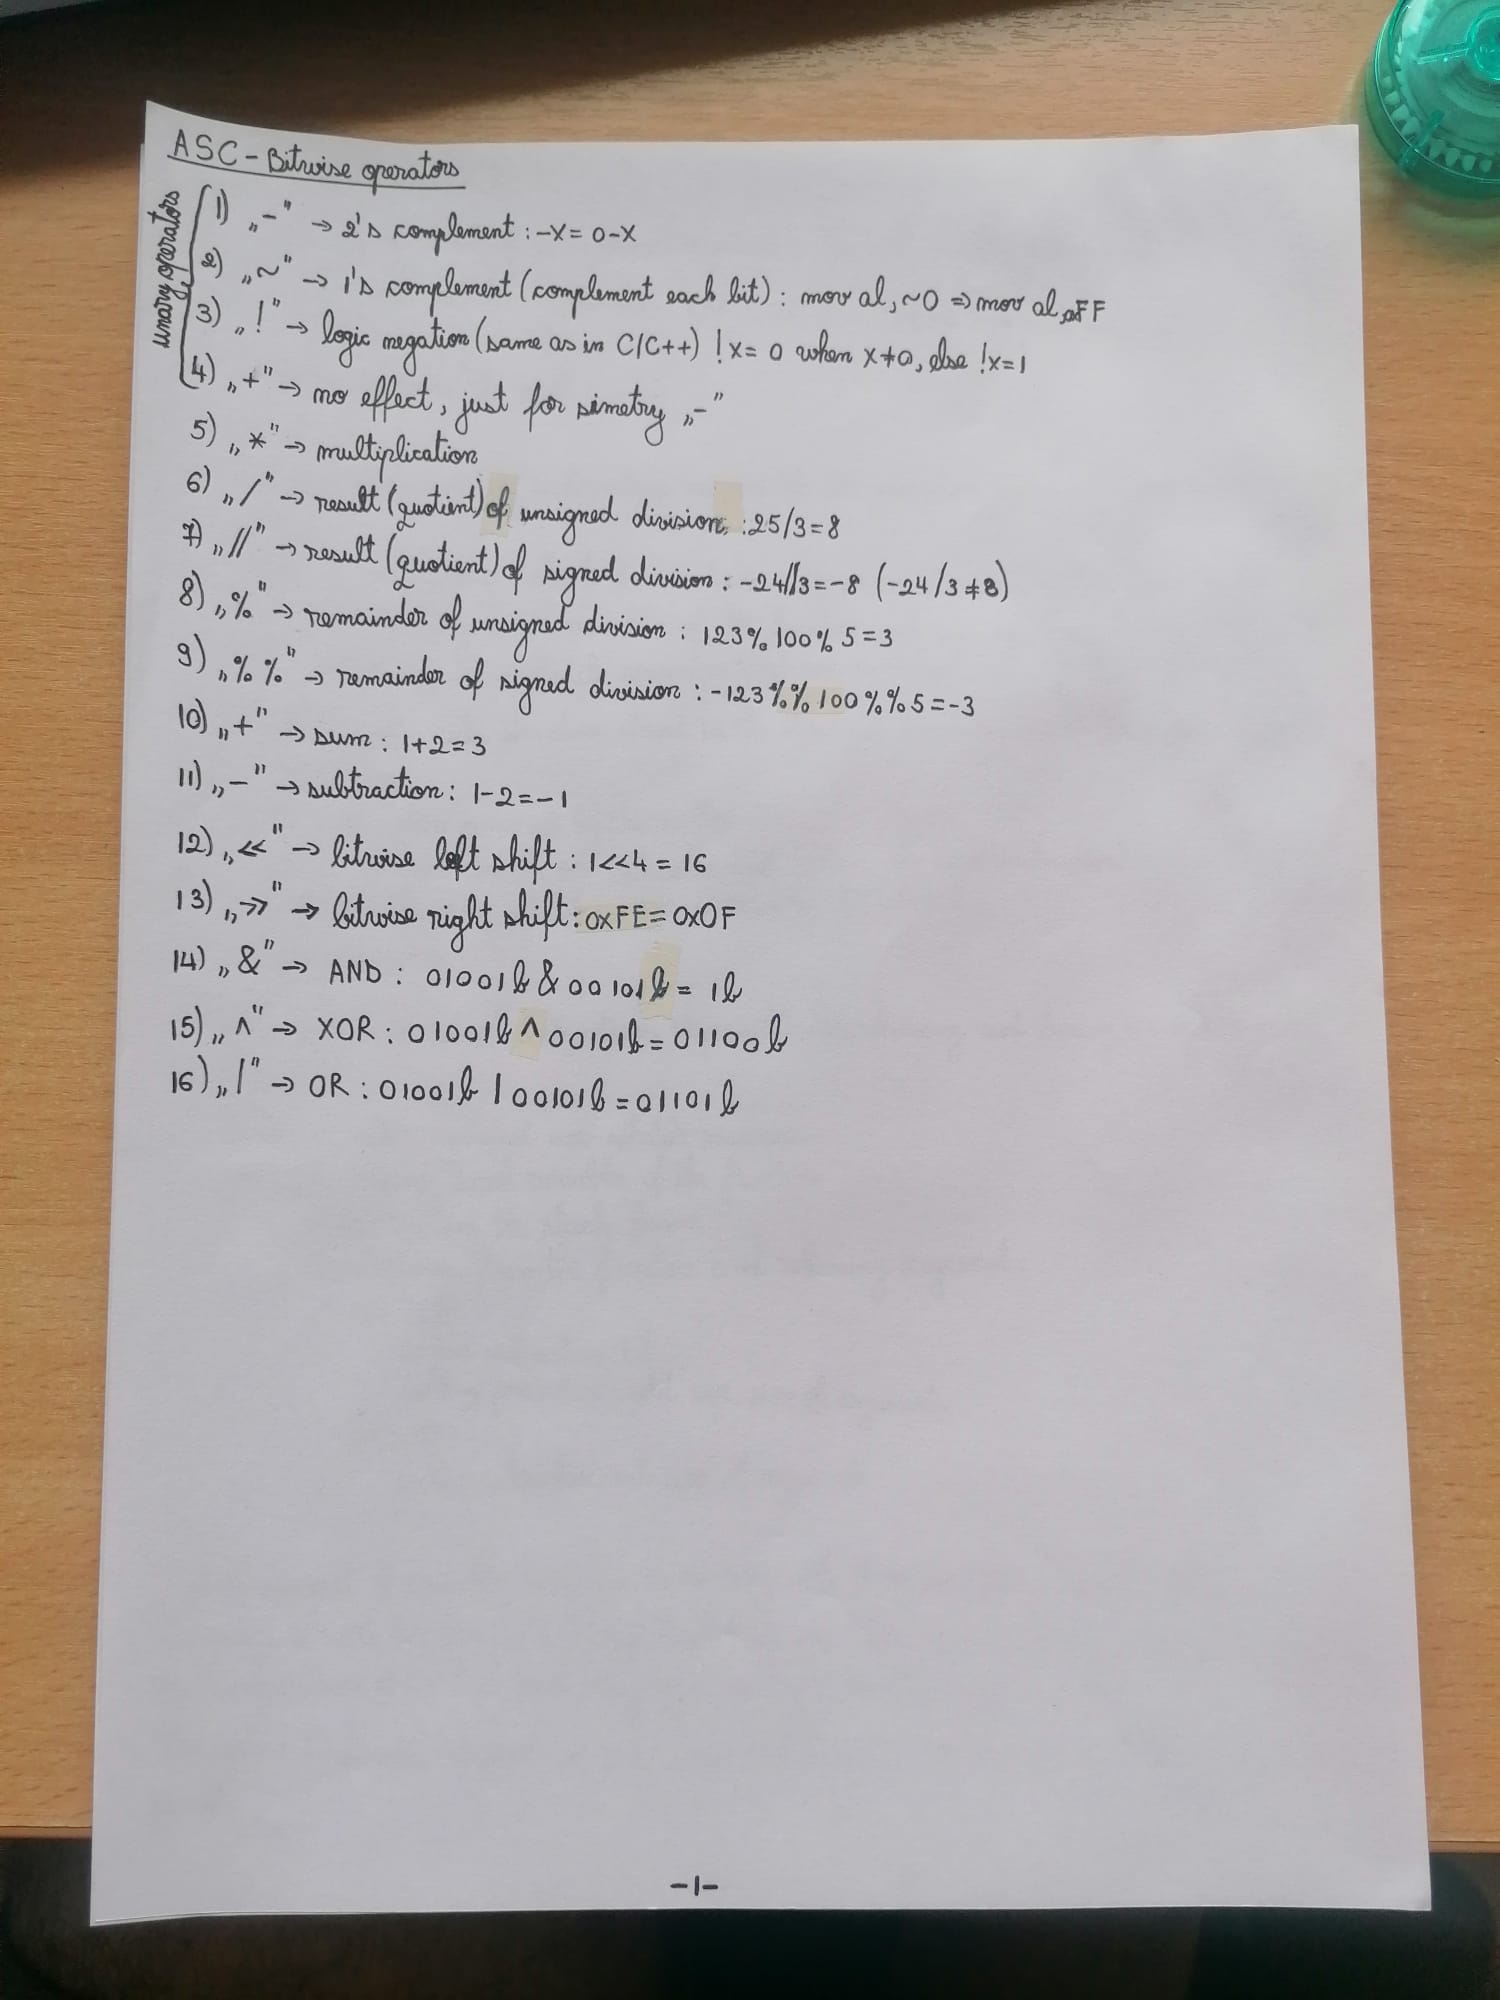 ASC - Bitwise operators
unary operators
1) „-" → 2's complement : -X = 0-X
2) „~" → 1's complement (complement each bit) : mov al, ~0 => mov al, 0FF
3) „!" → logic negation (same as in C/C++) !X = 0 when X≠0, else !X=1
4) „+" → no effect, just for simetry „-"
5) „*" → multiplication
6) „/" → result (quotient) of unsigned division : 25/3=8
7) „//" → result (quotient) of signed division : -24//3=-8 (-24/3≠8)
8) „%" → remainder of unsigned division : 123%100%5=3
9) „%%" → remainder of signed division : -123%%100%%5=-3
10) „+" → sum : 1+2=3
11) „-" → subtraction : 1-2=-1
12) „<<" → bitwise left shift : 1<<4 = 16
13) „>>" → bitwise right shift : 0xFE = 0x0F
14) „&" → AND : 01001b & 00101b = 1b
15) „^" → XOR : 01001b ^ 00101b = 01100b
16) „|" → OR : 01001b | 00101b = 01101b
-1-